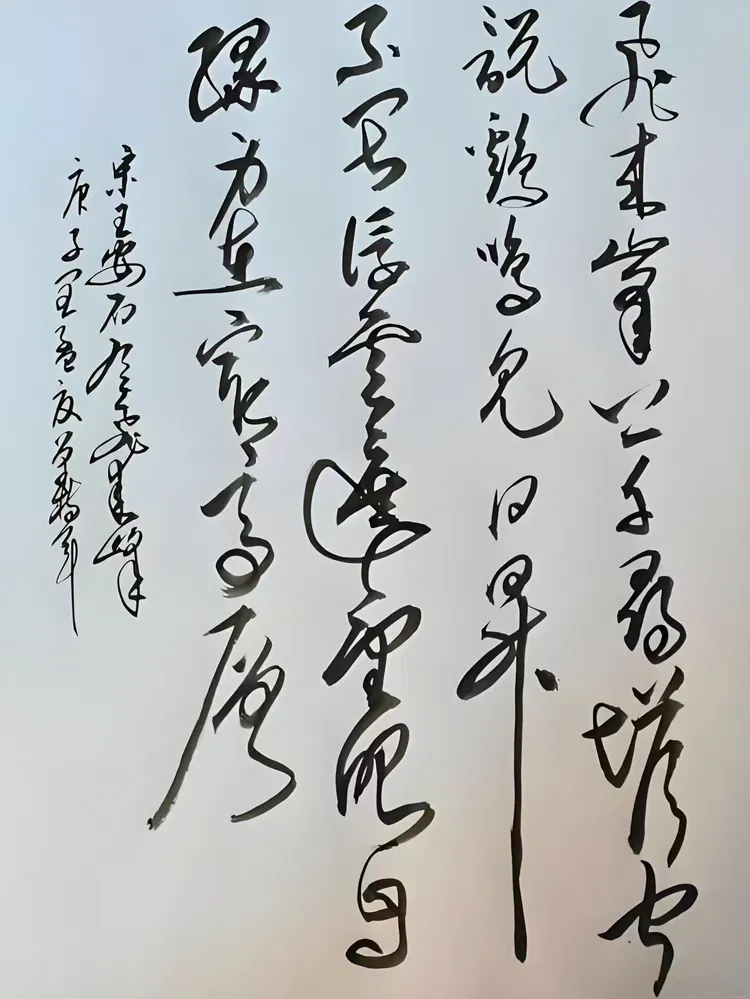 飛來峯上千尋塔聞
說鷄鳴見日昇
不畏浮雲遮望眼自
緣身在最高層
宋王安石登飛來峰
庚子孟夏